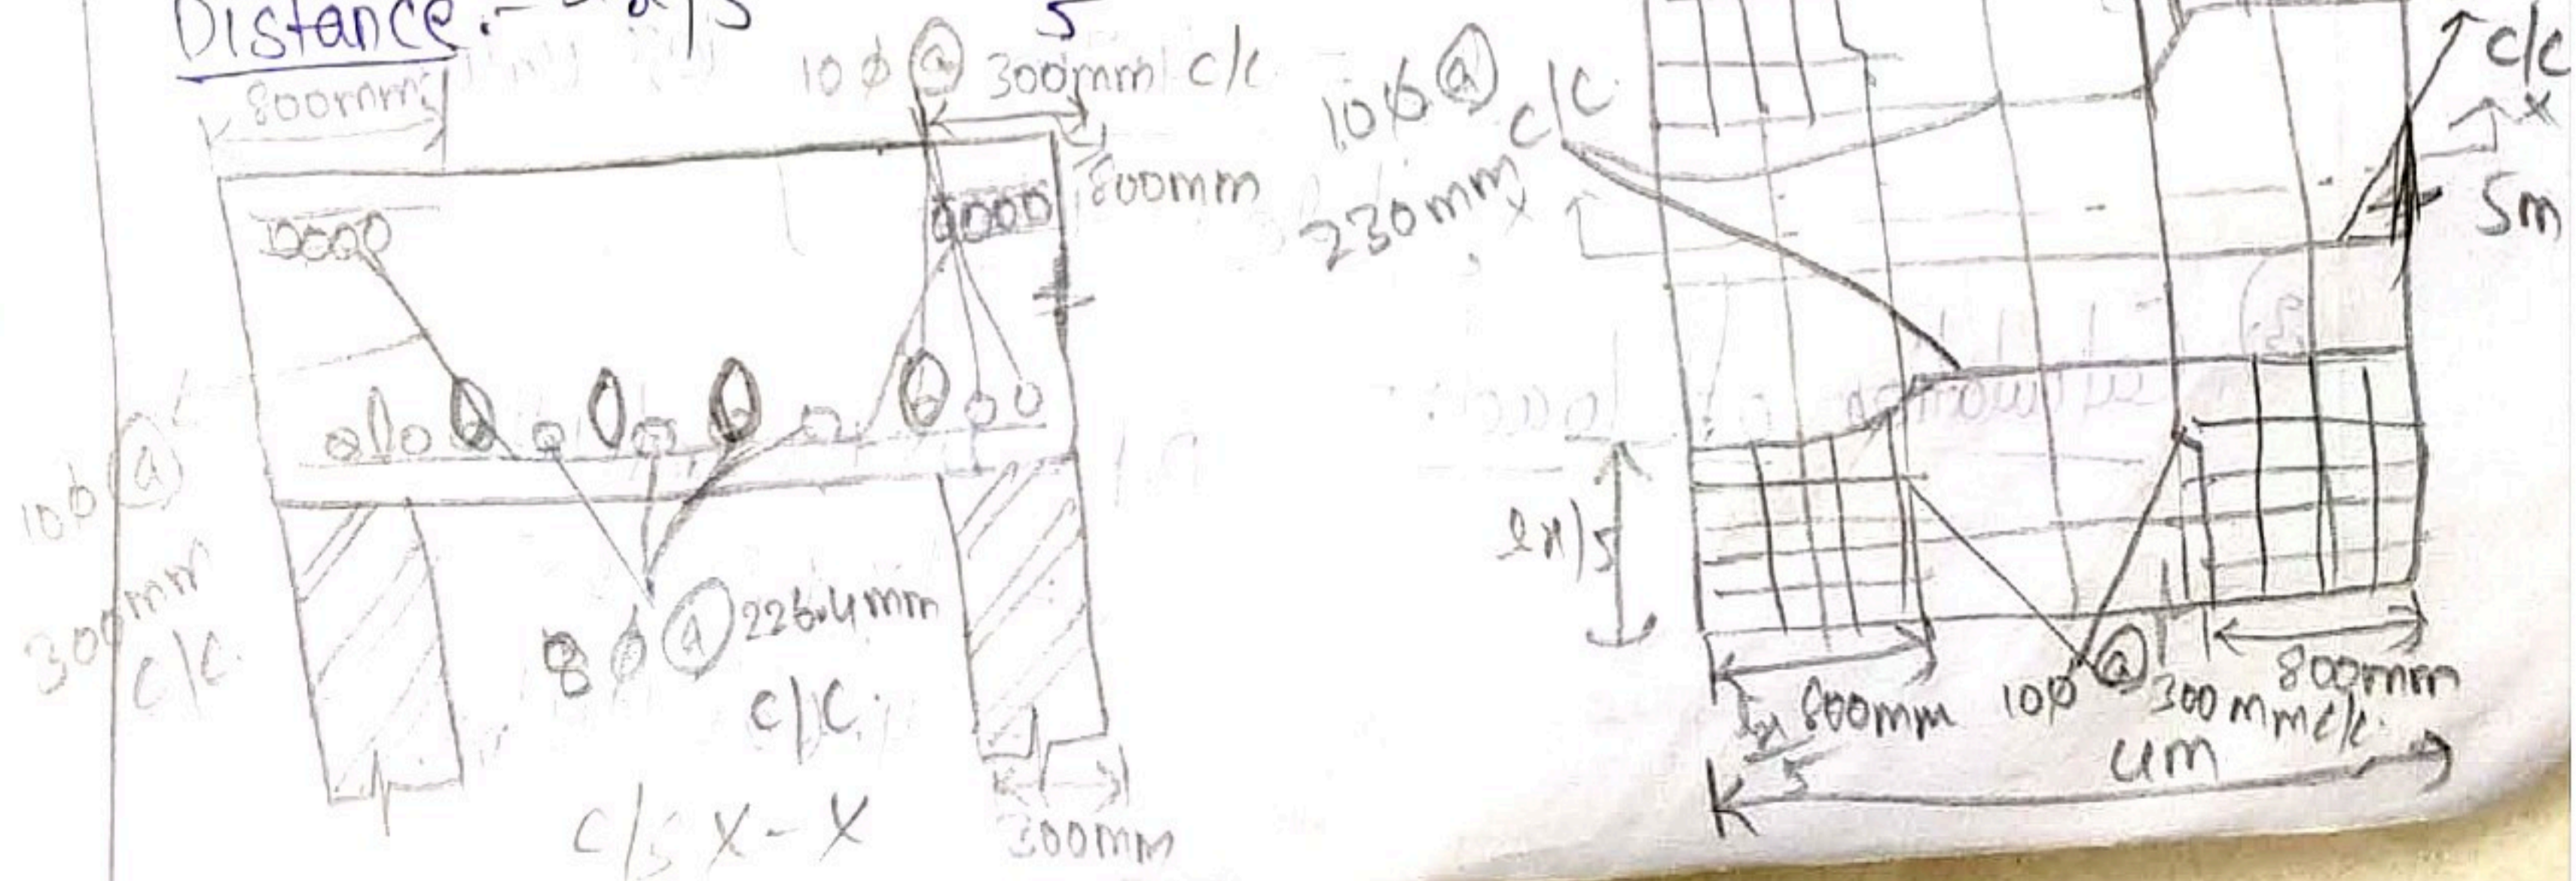 Distance:-
5
800mm
10 ϕ @ 300mm c/c
800mm
10 ϕ @
300mm
c/c.
8 ϕ @ 226.4mm
c/c.
c/s X-X
300mm
10 ϕ @
c/c.
230mm
X
c/c
X
5m
lx/5
lx/5
800mm
10ϕ @ 300mm c/c.
800mm
4m